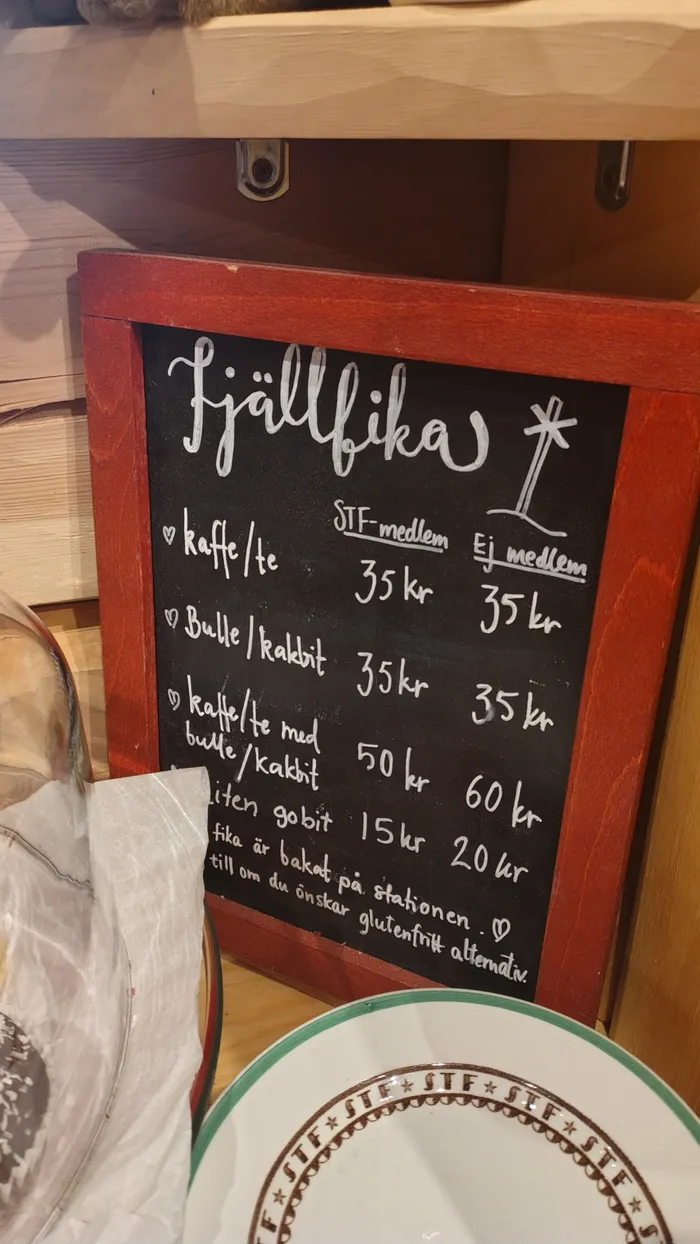 Fjällfika
STF-medlem Ej medlem
kaffe/te 35 kr 35 kr
Bulle/kakbit 35 kr 35 kr
kaffe/te med
bulle/kakbit 50 kr 60 kr
iten gobit 15 kr 20 kr
fika är bakat på stationen.
till om du önskar glutenfritt alternativ.
STF STF STF STF STF STF